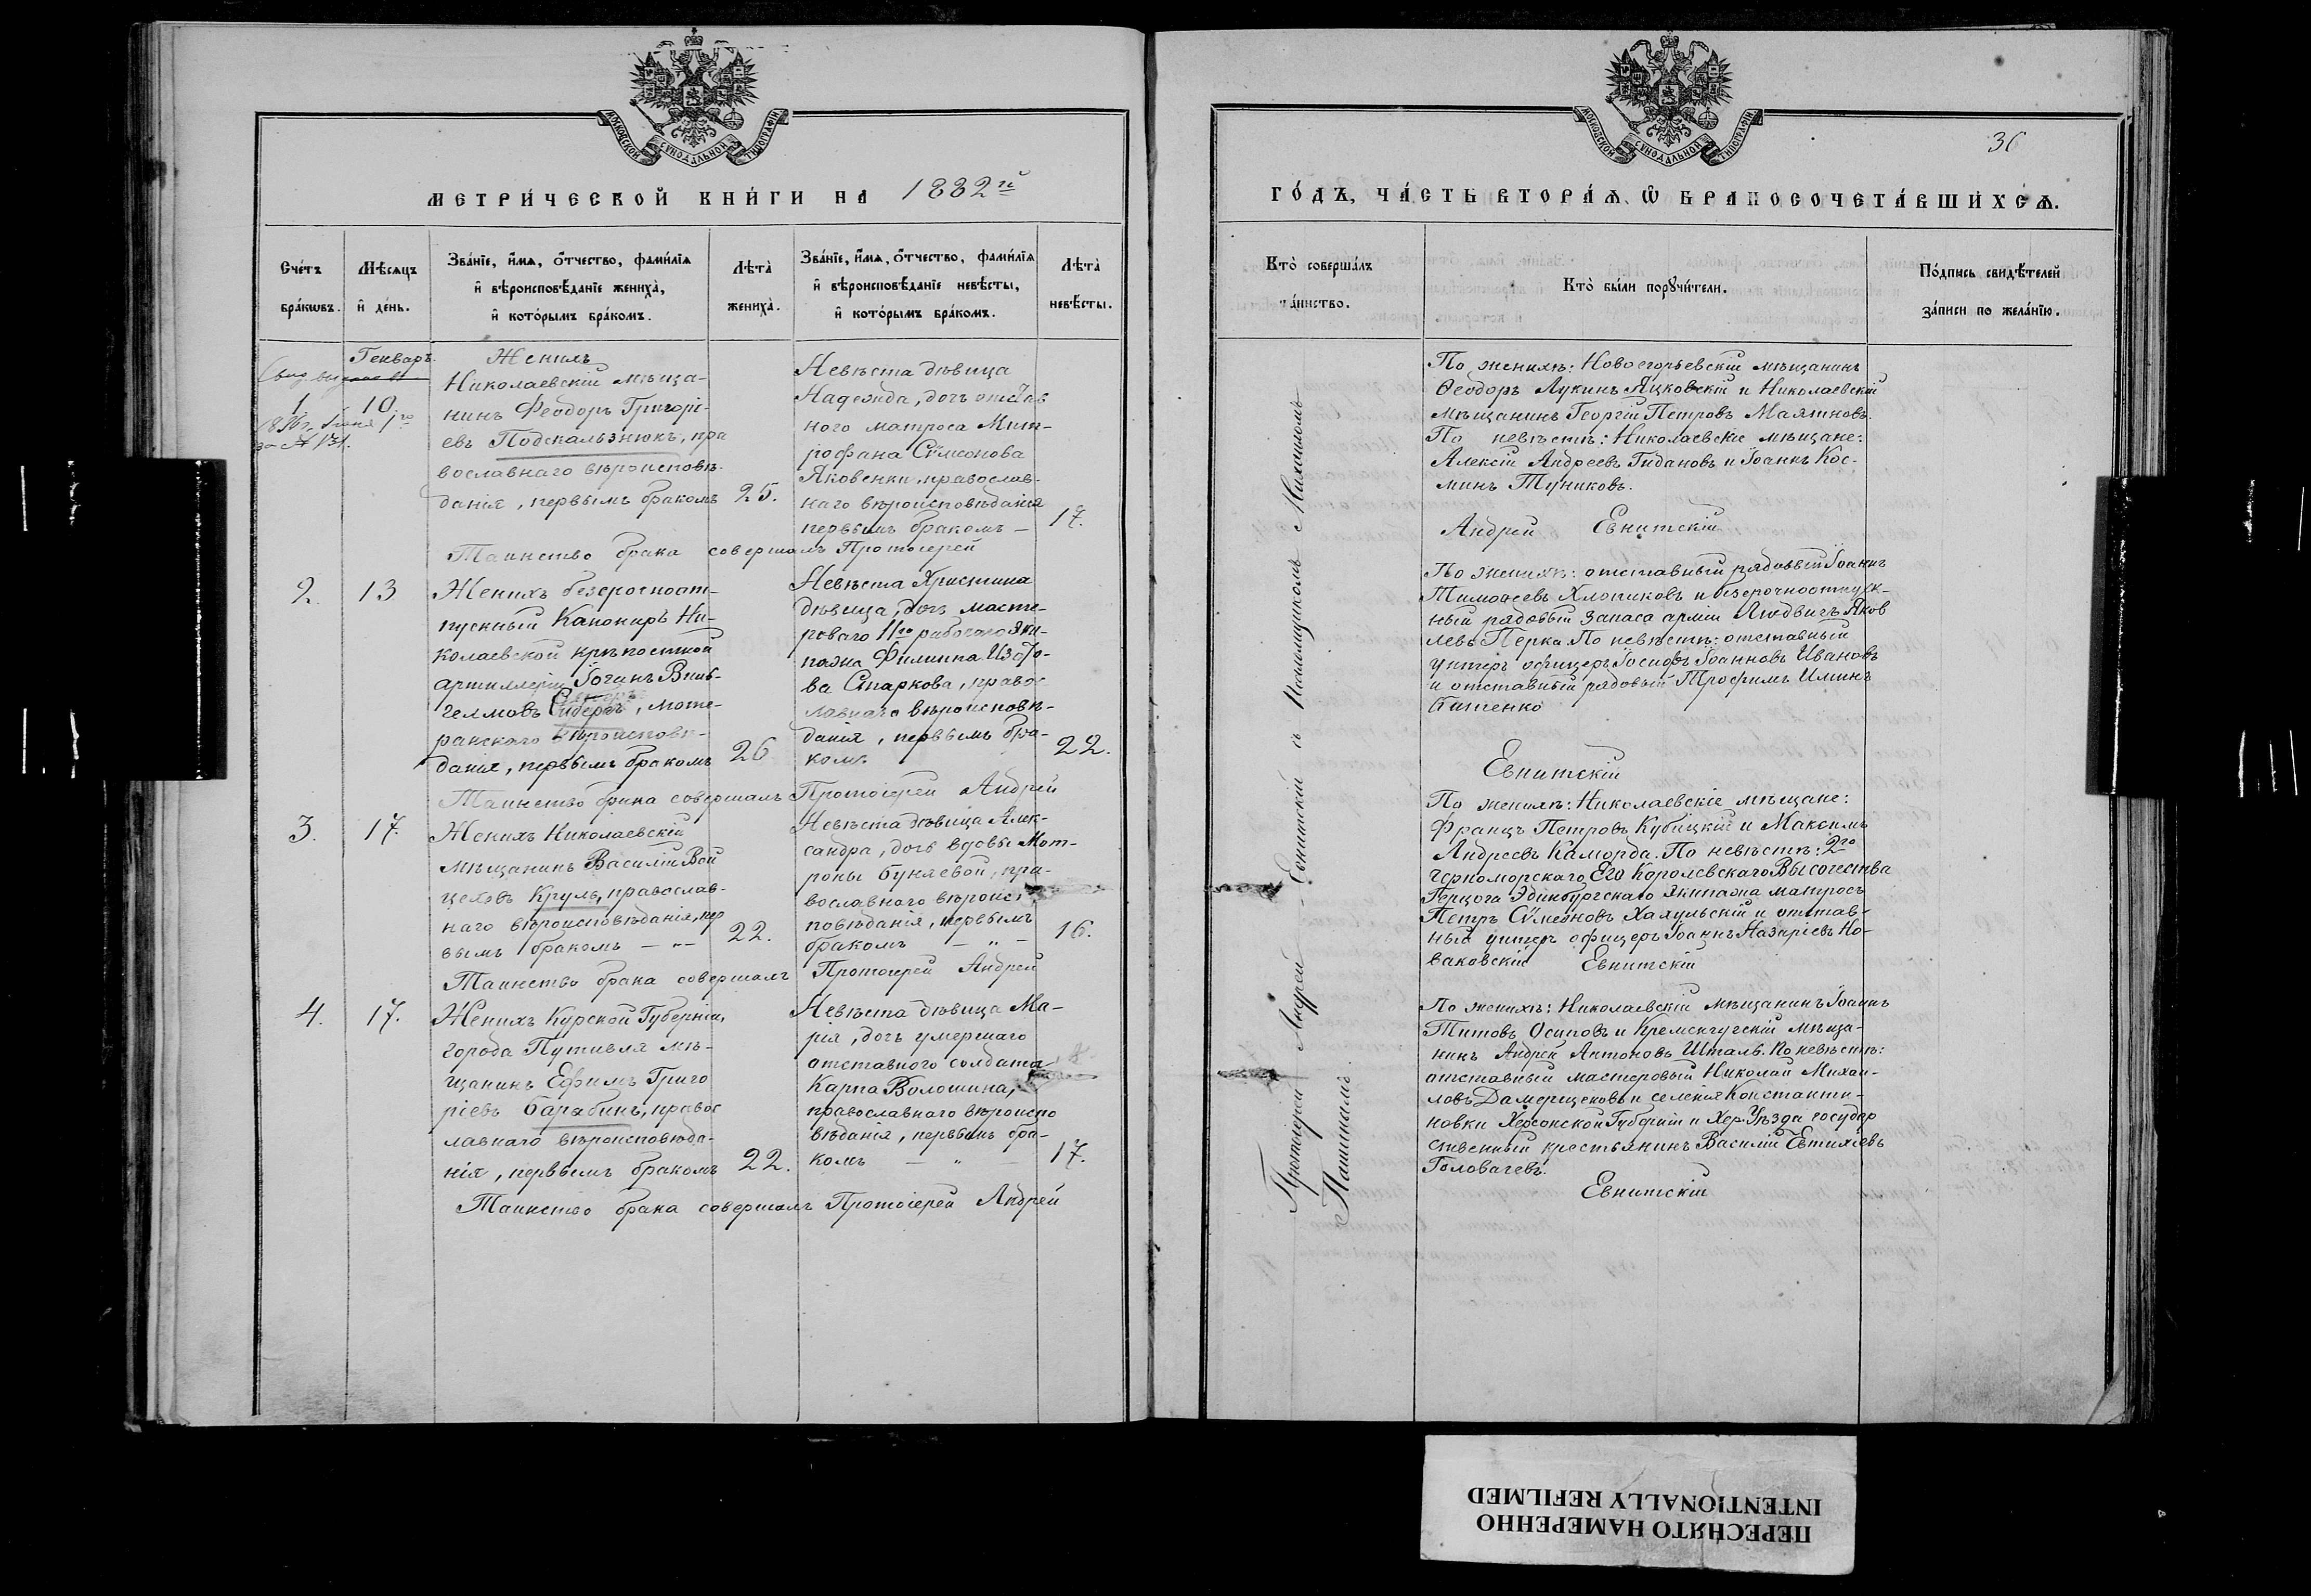 МОСКОВСКОЙ СѴНОДАЛЬНОЙ ТИПОГРАФІИ
МЕТРИ́ЧЕСКОЙ КНИ́ГИ НА 1882й
Сче́тъ бра́кѡвъ.
Мѣ́сяцъ и҆ де́нь.
Зва́нїе, и҆́мѧ, ѻ҆́тчество, фами́лїѧ
и҆ вѣроисповѣ́данїе жениха̀,
и҆ кото́рымъ бра́комъ.
Лѣта̀ жениха̀.
Зва́нїе, и҆́мѧ, ѻ҆́тчество, фами́лїѧ
и҆ вѣроисповѣ́данїе невѣ́сты,
и҆ кото́рымъ бра́комъ.
Лѣта̀ невѣ́сты.
Генварь.
1.
10.
Женихъ
Николаевскій мѣща-
нинъ Феодоръ Григорі-
евъ Подскальзнюкъ, пра
вославнаго вѣроисповѣ-
данія, первымъ бракомъ
25.
Невѣста дѣвица
Надежда, дочь отстав
ного матроса Мит-
рофана Сѵмеонова
Яковенки, православ-
наго вѣроисповѣданія
первымъ бракомъ —
17.
Таинство брака совершалъ Протоіерей
2.
13
Женихъ безсрочноот-
пускный Канониръ Ни-
колаевской крѣпостной
артиллеріи Іоганъ Виль-
гелмовъ, люте-
ранскаго вѣроисповѣ-
данія, первымъ бракомъ
26
Невѣста Христина
дѣвица, дочь масте-
роваго 11го рабочаго эки-
пажа Филиппа Изото-
ва Старкова, правос
лавнаго вѣроисповѣ-
данія, первымъ бра-
комъ
22.
Таинство брака совершалъ Протоіерей Андрей
3.
17.
Женихъ Николаевскій
мѣщанинъ Василій Вой
цеховъ Круль, православ-
наго вѣроисповѣданія, пер
вымъ бракомъ — „ —
22.
Невѣста дѣвица Алек-
сандра, дочь вдовы Мат-
роны Буняевой, пра-
вославнаго вѣроис
повѣданія, первымъ
бракомъ — „ —
16.
Таинство брака совершалъ Протоіерей Андрей
4.
17.
Женихъ Курской Губерніи,
города Путивля мѣ-
щанинъ Ефимъ Григо
ріевъ Барабинъ, правос
лавнаго вѣроисповѣда-
нія, первымъ бракомъ
22.
Невѣста дѣвица Ма-
рія, дочь умершаго
отставного солдата
Карпа Волошина,
православнаго вѣроиспо
вѣданія, первымъ бра-
комъ — „ —
17.
Таинство брака совершалъ Протоіерей Андрей
МОСКОВСКОЙ СѴНОДАЛЬНОЙ ТИПОГРАФІИ
36
ГО́ДЪ, ЧА́СТЬ ВТОРА́Ѧ, Ѡ҆ БРАКОСОЧЕТА́ВШИХСѦ.
Кто̀ соверша́лъ
та́инство.
Кто̀ бы́ли порꙋчи́тели.
По́дпись свидѣ́телей
за́писи по жела́нїю.
Протоіерей Андрей Евнитскій съ
По женихѣ: Новоегорьевскій мѣщанинъ
Ѳеодоръ Лукинъ Яцковскій и Николаевскій
мѣщанинъ Георгій Петровъ Маятновъ.
По невѣстѣ: Николаевскіе мѣщане:
Алексій Андреевъ Гидановъ и Іоаннъ Кос-
минъ Туниковъ.
Андрей Евнитскій
По женихѣ: отставный рядовый Іоаннъ
Тимоѳеевъ Хлопиковъ и безсрочноотпуск-
ный рядовый запаса арміи Людвигъ Яков
левъ Перка По невѣстѣ: отставный
унтеръ офицеръ Іосифъ Іоанновъ Ивановъ
и отставный рядовый Трофимъ Илиинъ
Евнитскій
По женихѣ: Николаевскіе мѣщане:
Францъ Петровъ Кубицкій и Максимъ
Андреевъ Каморда. По невѣстѣ: 2го
Черноморскаго Его Королевскаго Высочества
Герцога Эдинбургскаго экипажа матросъ
Петръ Сѵмеоновъ Хахульскій и отстав-
ный унтеръ офицеръ Іоаннъ Назаріевъ Но-
ваковскій Евнитскій
По женихѣ: Николаевскій мѣщанинъ Іоаннъ
Титовъ Осиповъ и Кременчугскій мѣща-
нинъ Андрей Антоновъ Шталь. По невѣстѣ:
отставный мастеровый Николай Михаи-
ловъ Дамерщековъ и селенія Константи-
новки Херсонской Губерніи и Хер. Уѣзда государ
ственный крестьянинъ Василій Евтихіевъ
Головачевъ.
Евнитскій
ПЕРЕСНЯТО НАМЕРЕННО
INTENTIONALLY REFILMED